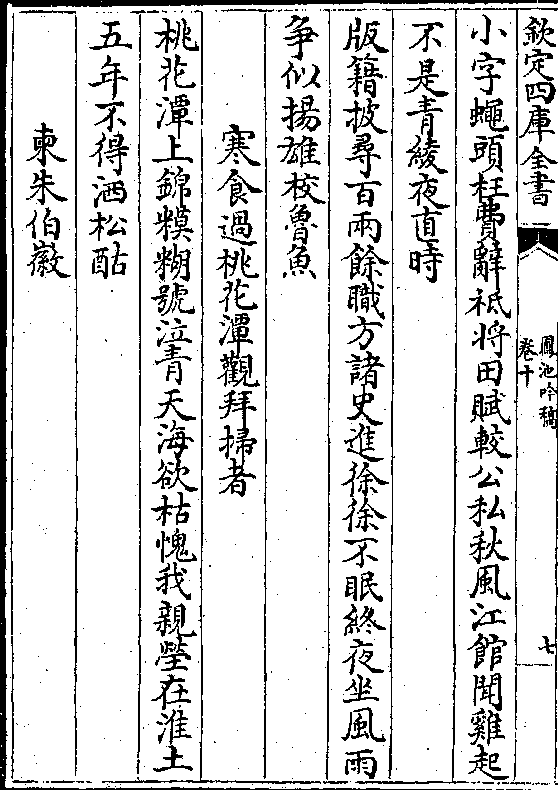 欽定四庫全書
鳳池吟稿
卷十
七
小字蠅頭枉費辭祗将田賦較公私秋風江館聞雞起
不是青綾夜直時
版籍披尋百兩餘職方諸史進徐徐不眠終夜坐風雨
争似揚雄校魯魚
寒食過桃花潭觀拜掃者
桃花潭上錦糢糊號泣青天海欲枯愧我親塋在淮土
五年不得洒松酤
柬朱伯徽